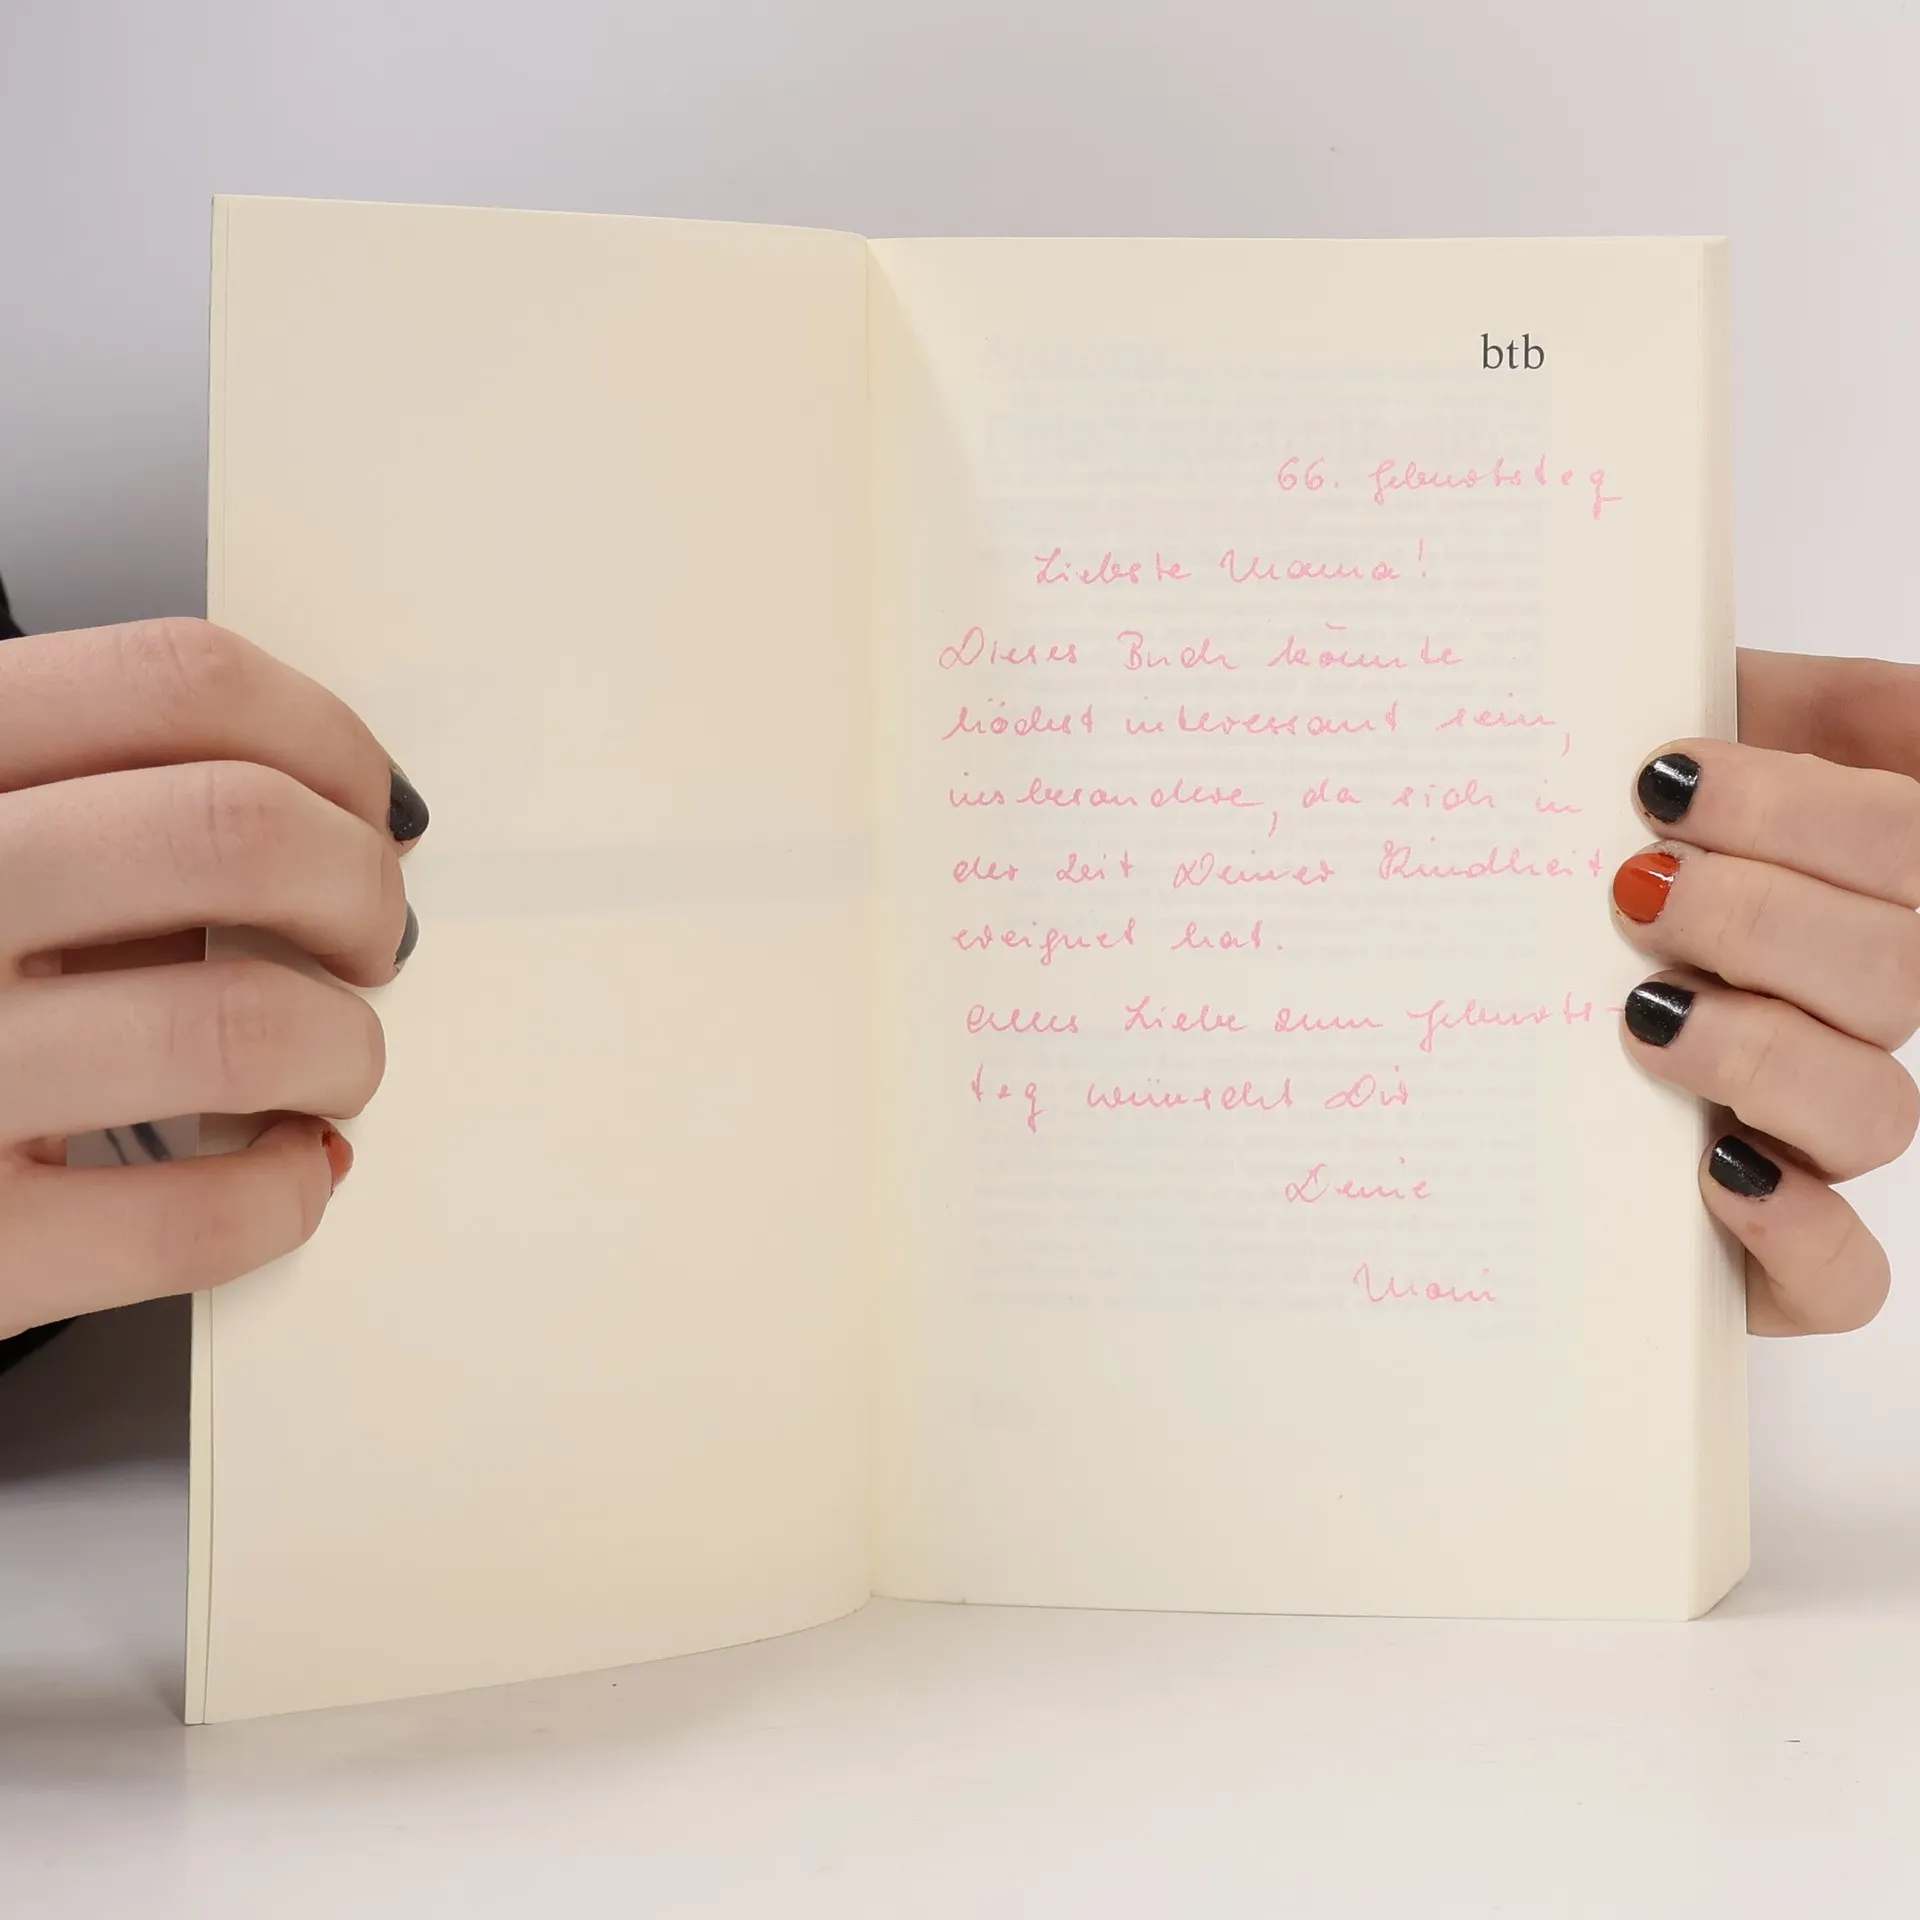 btb
66. Geburtstag
Liebste Mama!
Dieses Buch könnte
höchst interessant sein,
insbesondere, da sich in
der Zeit Deiner Kindheit
ereignet hat.
Alles Liebe zum Geburts-
tag wünscht Dir
Deine
Moni